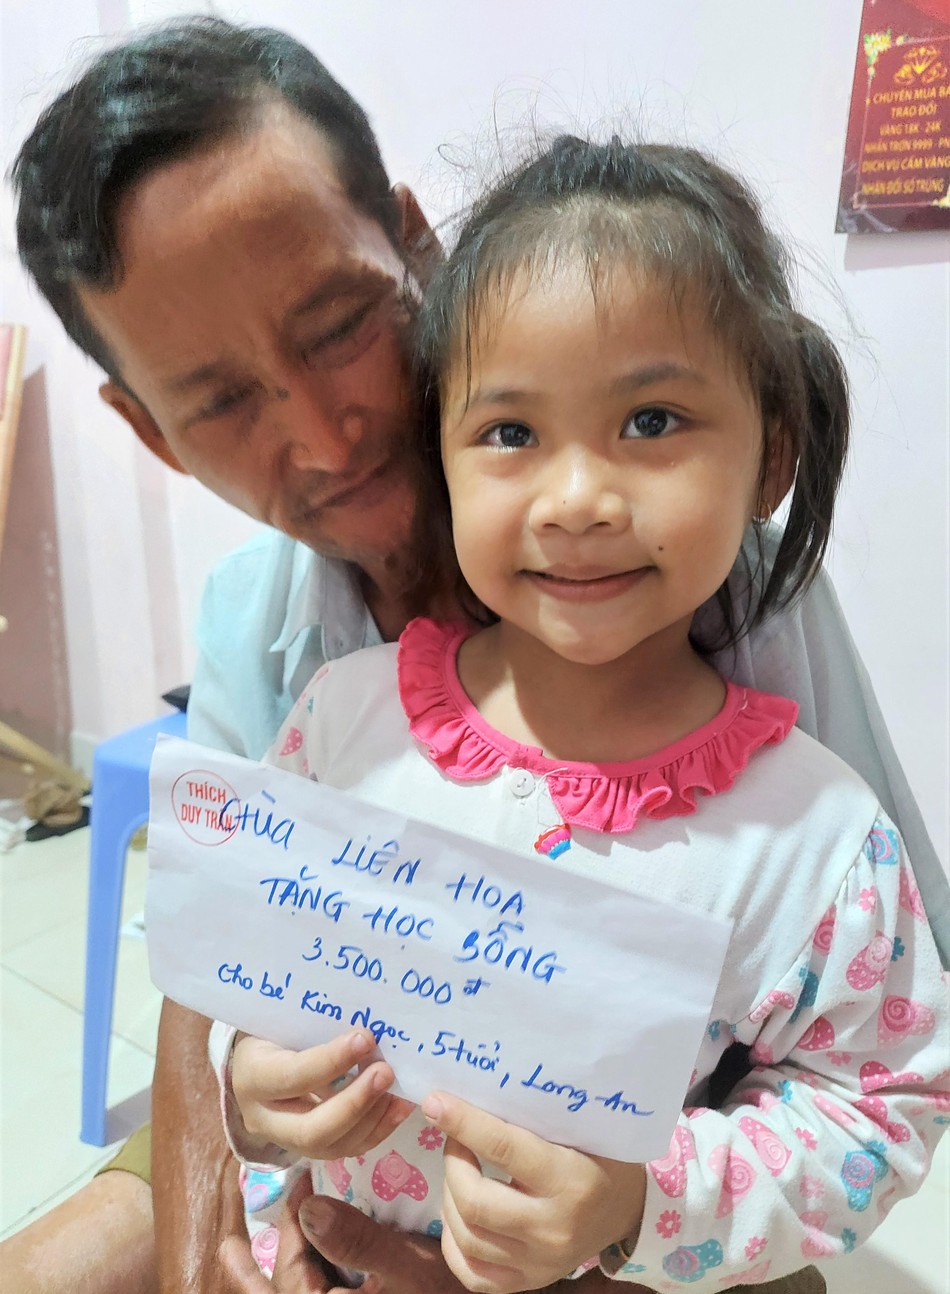 CHUYÊN MUA BÁ
TRAO ĐỔI
VÀNG 18K - 24K
NHẪN TRƠN 9999 - PN
DỊCH VỤ CẦM VÀNG
NHÂN ĐÔI SỐ TRÚNG
THÍCH
DUY TRẤN
CHÙA LIÊN HOA
TẶNG HỌC BỔNG
3.500.000 đ
cho bé Kim Ngọc, 5 tuổi, Long-An